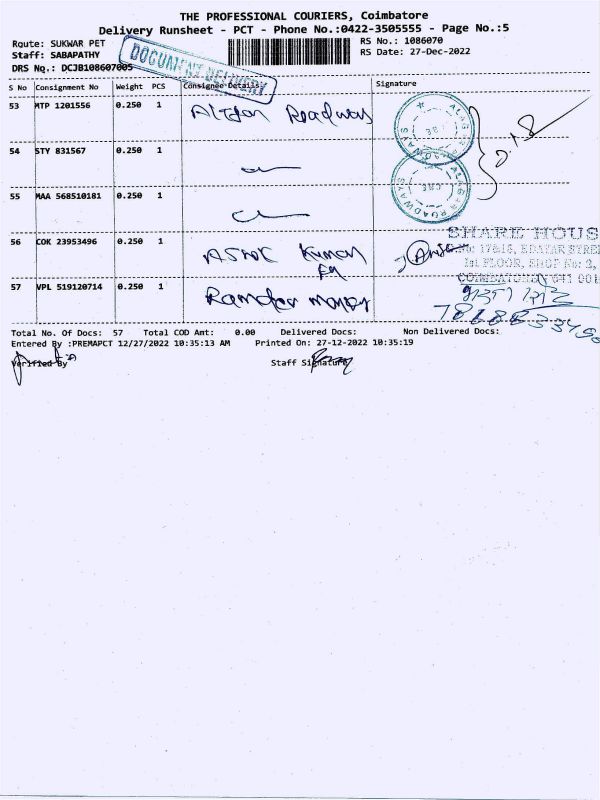 THE PROFESSIONAL COURIERS, Coimbatore
Delivery Runsheet - PCT - Phone No.:0422-3505555 - Page No.:5
Route: SUKWAR PET
RS No.: 1086070
Staff: SABAPATHY
RS Date: 27-Dec-2022
DRS No.: DCJB108607005
DOCUMENT DELIVERY
S No Consignment No Weight PCS Consignee Details Signature
53 MTP 1201556 0.250 1 Roadways
ALAGAR ROADWAYS
CBE
54 STY 831567 0.250 1
ALAGAR ROADWAYS
CBE
55 MAA 568510181 0.250 1
SHARE HOUS
56 COK 23953496 0.250 1 ASHOK Kumar
1st FLOOR, SHOP No: 2,
COIMBATORE 641 001
57 VPL 519120714 0.250 1 Ramdev
Total No. Of Docs: 57 Total COD Amt: 0.00 Delivered Docs: Non Delivered Docs:
Entered By :PREMAPCT 12/27/2022 10:35:13 AM Printed On: 27-12-2022 10:35:19
Verified By Staff Signature